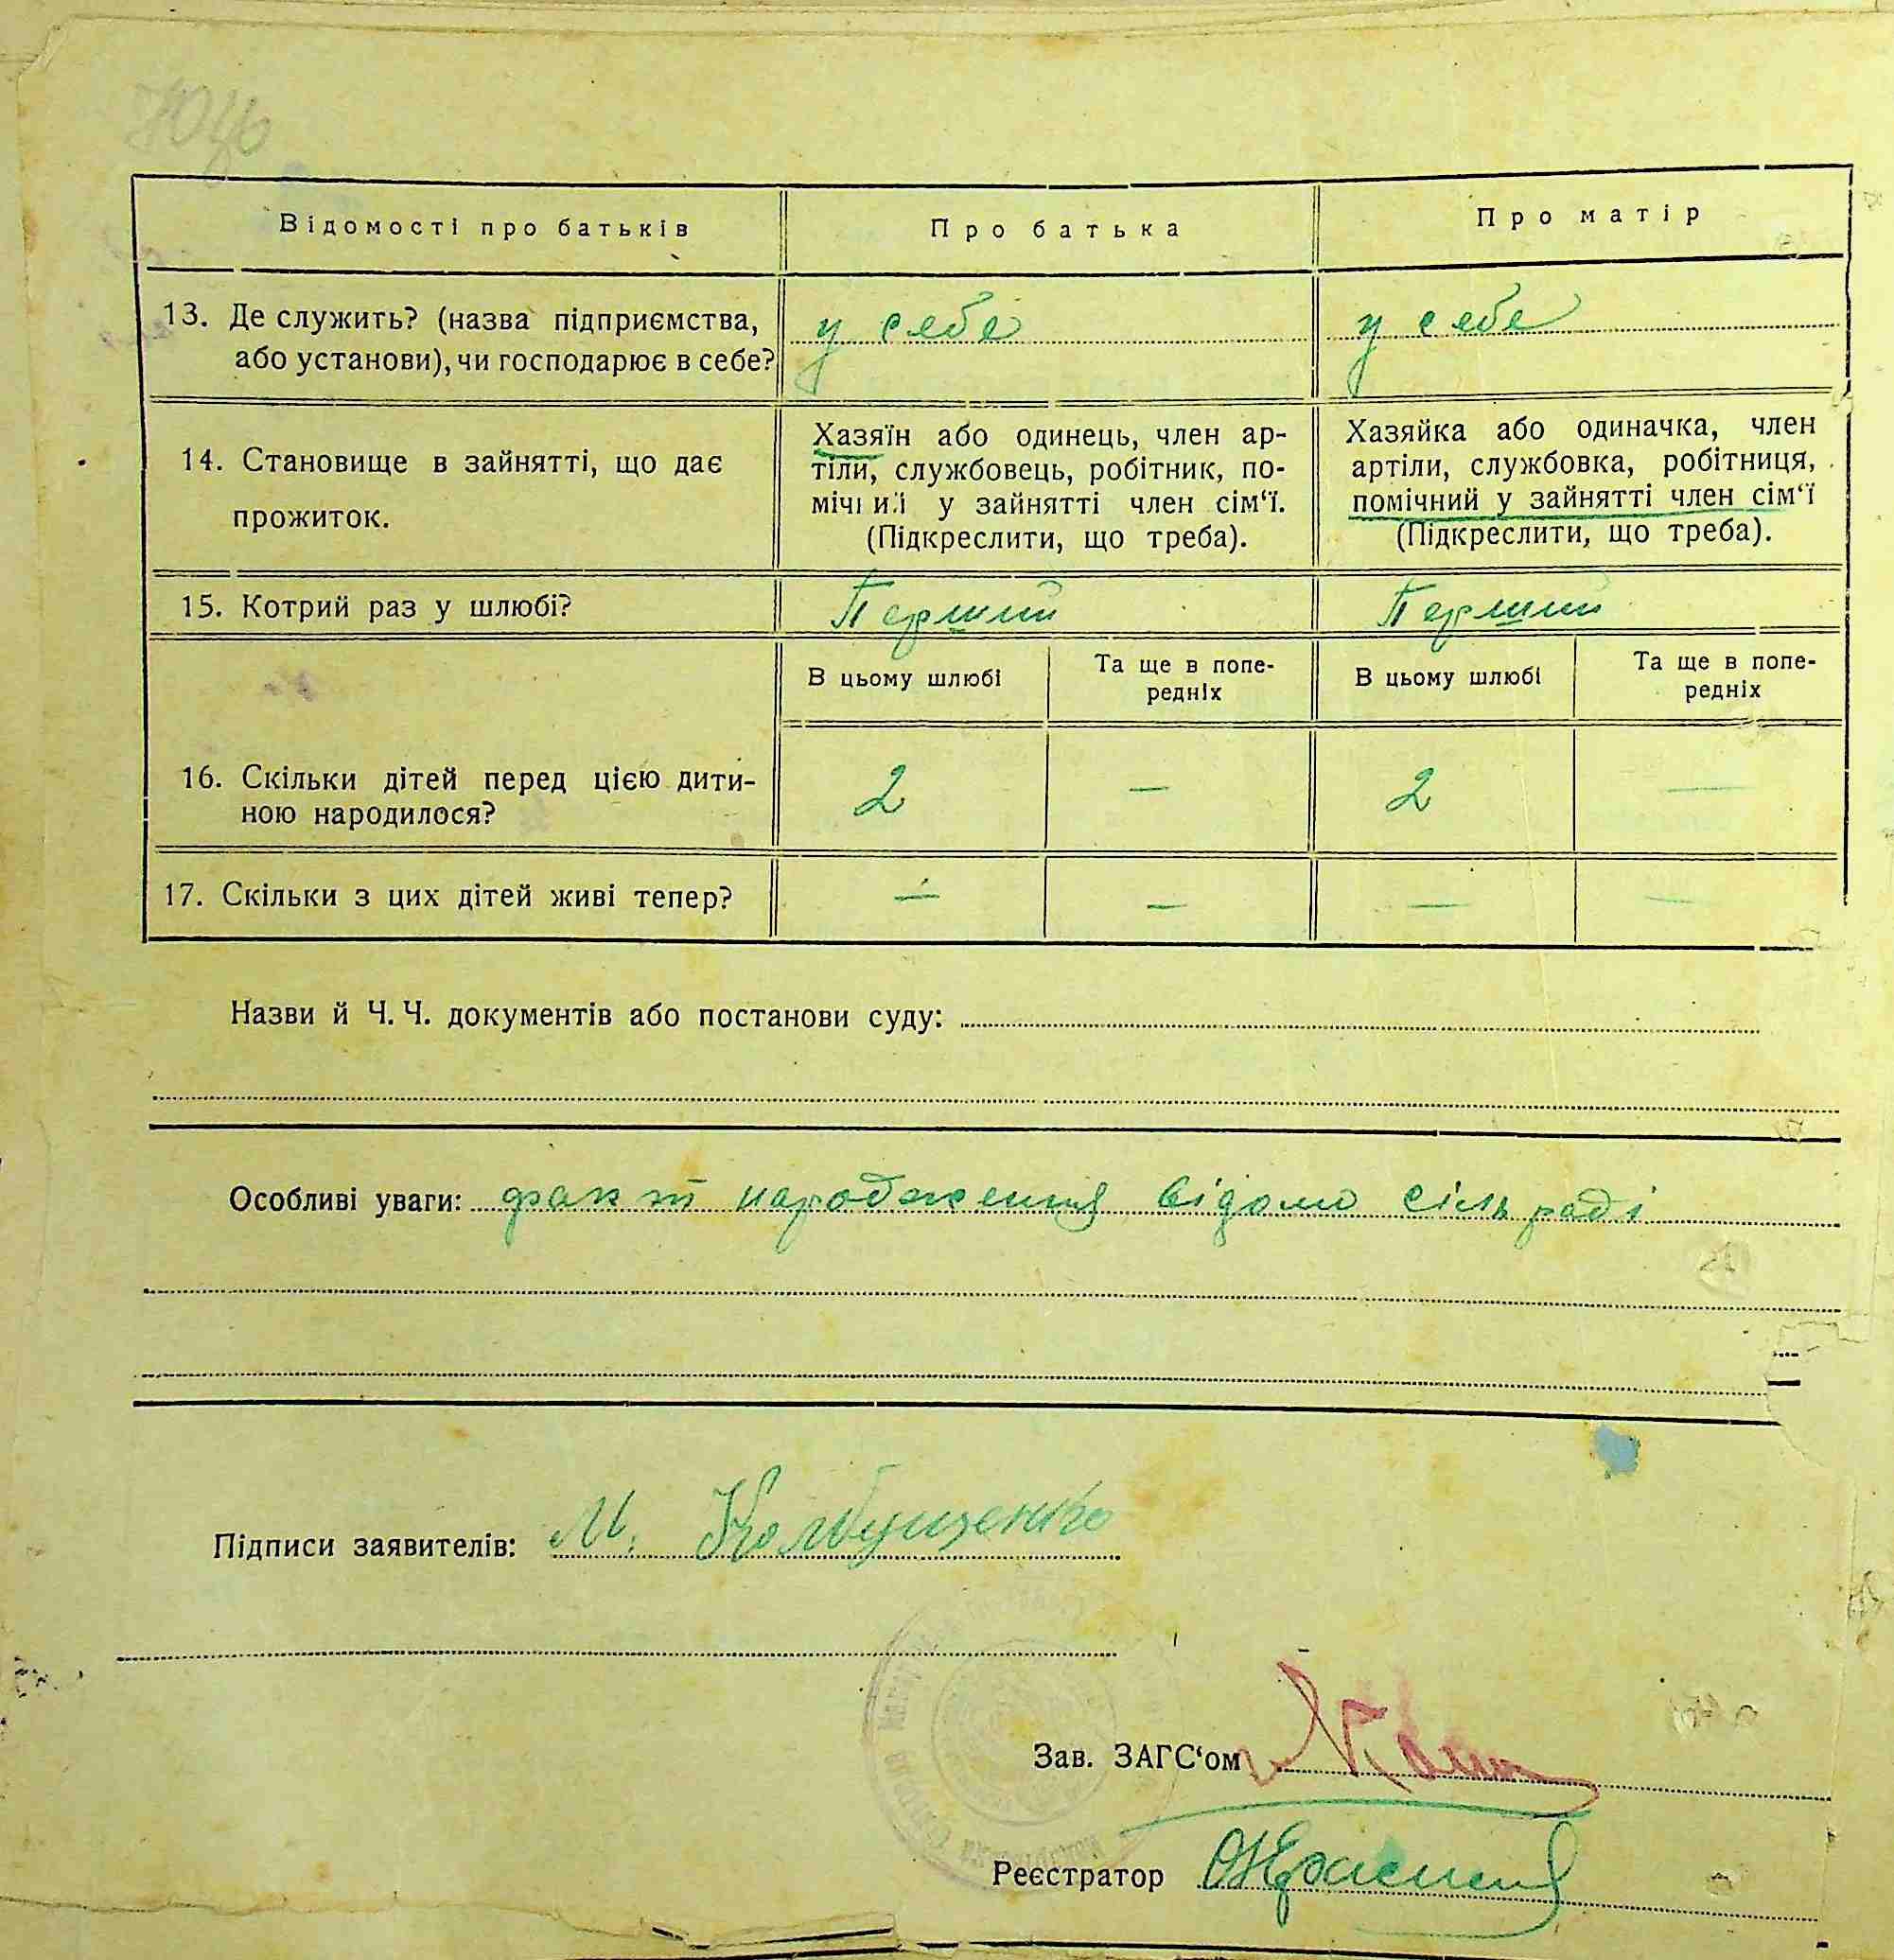 Відомості про батьків
Про батька
Про матір
13. Де служить? (назва підприємства,
або установи), чи господарює в себе?
у себе
у себе
14. Становище в зайнятті, що дає
прожиток.
Хазяїн або одинець, член ар-
тіли, службовець, робітник, по-
у зайнятті член сім‘ї.
(Підкреслити, що треба).
Хазяйка або одиначка, член
артіли, службовка, робітниця,
помічний у зайнятті член сім‘ї
(Підкреслити, що треба).
15. Котрий раз у шлюбі?
Перший
Перший
В цьому шлюбі
Та ще в попе-
редніх
В цьому шлюбі
Та ще в попе-
редніх
16. Скільки дітей перед цією дити-
ною народилося?
2
—
2
—
17. Скільки з цих дітей живі тепер?
—
—
—
—
Назви й Ч. Ч. документів або постанови суду:
Особливі уваги: факт народження відомо сільраді
Підписи заявителів: М.
Зав. ЗАГС‘ом
Реєстратор